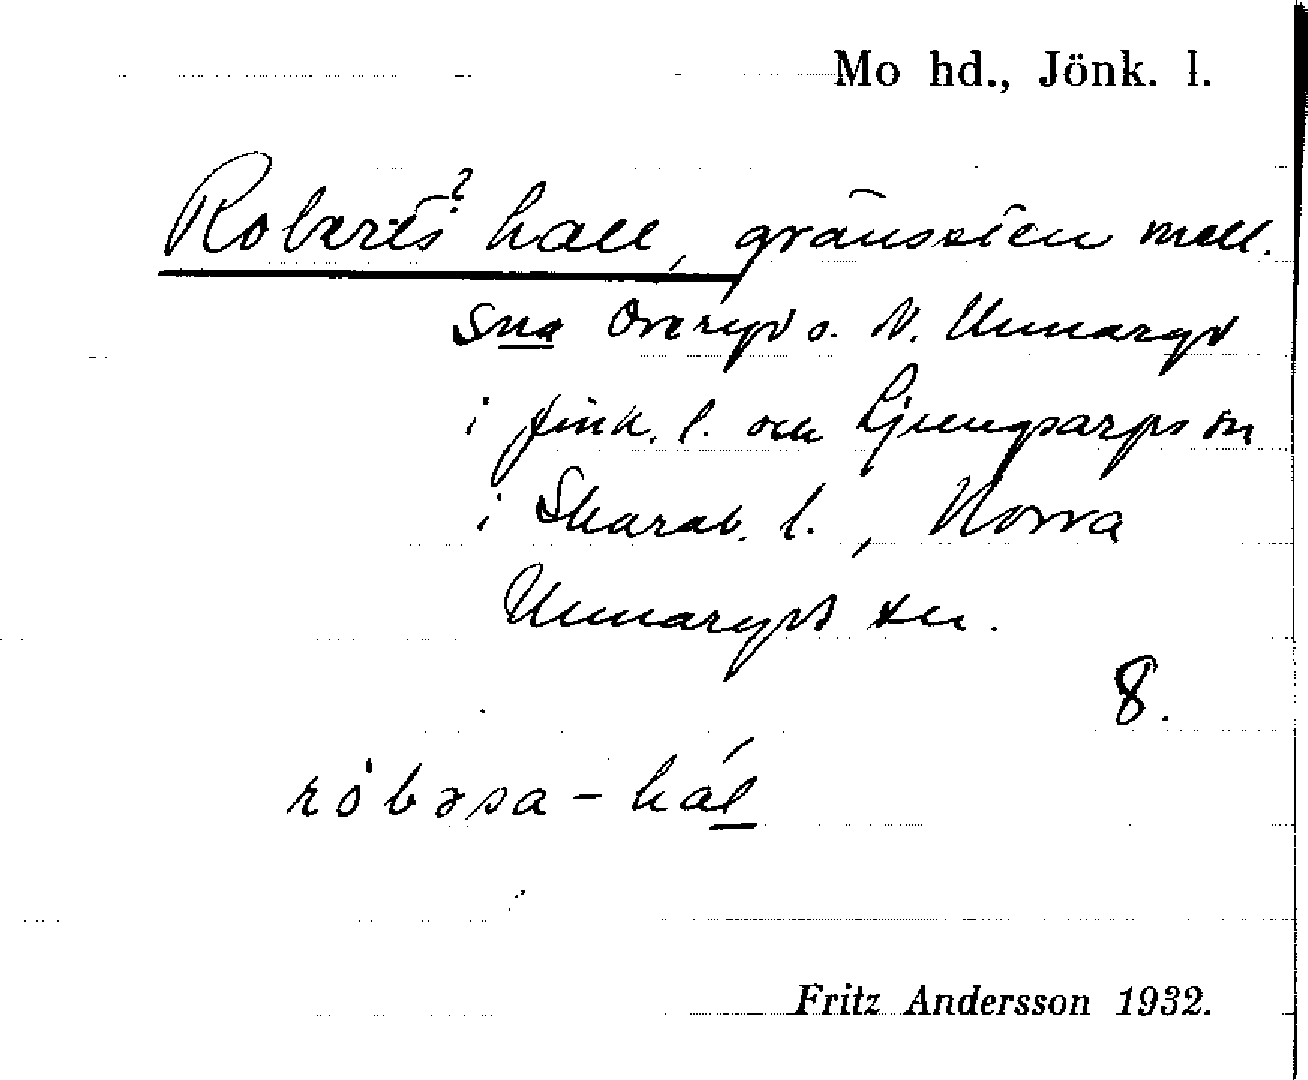 Mo hd., Jönk. l.
Roberts? hall, gränssten mell.
sna Överyd o. N. Unnaryd
i Jönk. l. och Ljungsarps sn
i Skarab. l., Norra
Unnaryds sn.
8.
ròbəsa-hál
Fritz Andersson 1932.